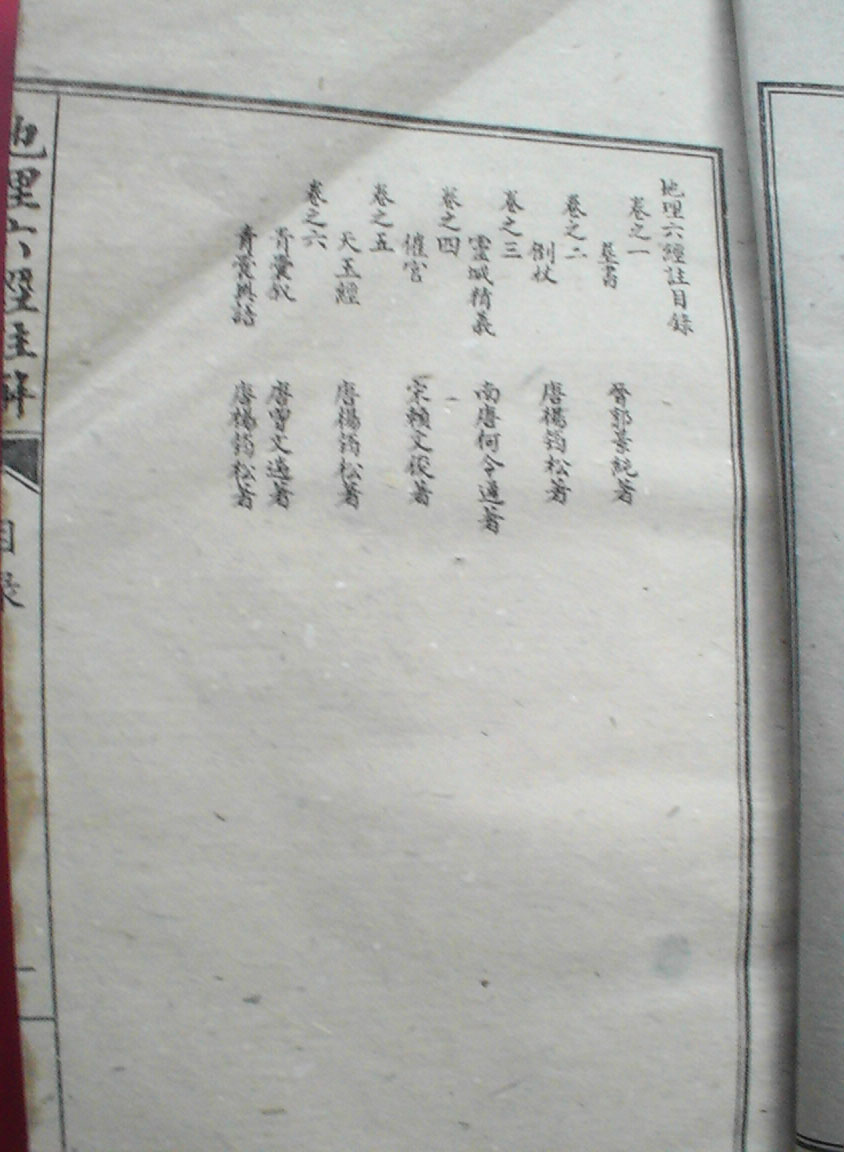 地理六經註目錄
卷之一
葬書 晉郭景純著
卷之二
倒杖 唐楊筠松著
卷之三
靈城精義 南唐何令通著
卷之四
催官 宋賴文俊著
卷之五
天玉經 唐楊筠松著
卷之六
青囊敘 唐曾文遄著
青囊奧語 唐楊筠松著
地理六經註解
目錄
一